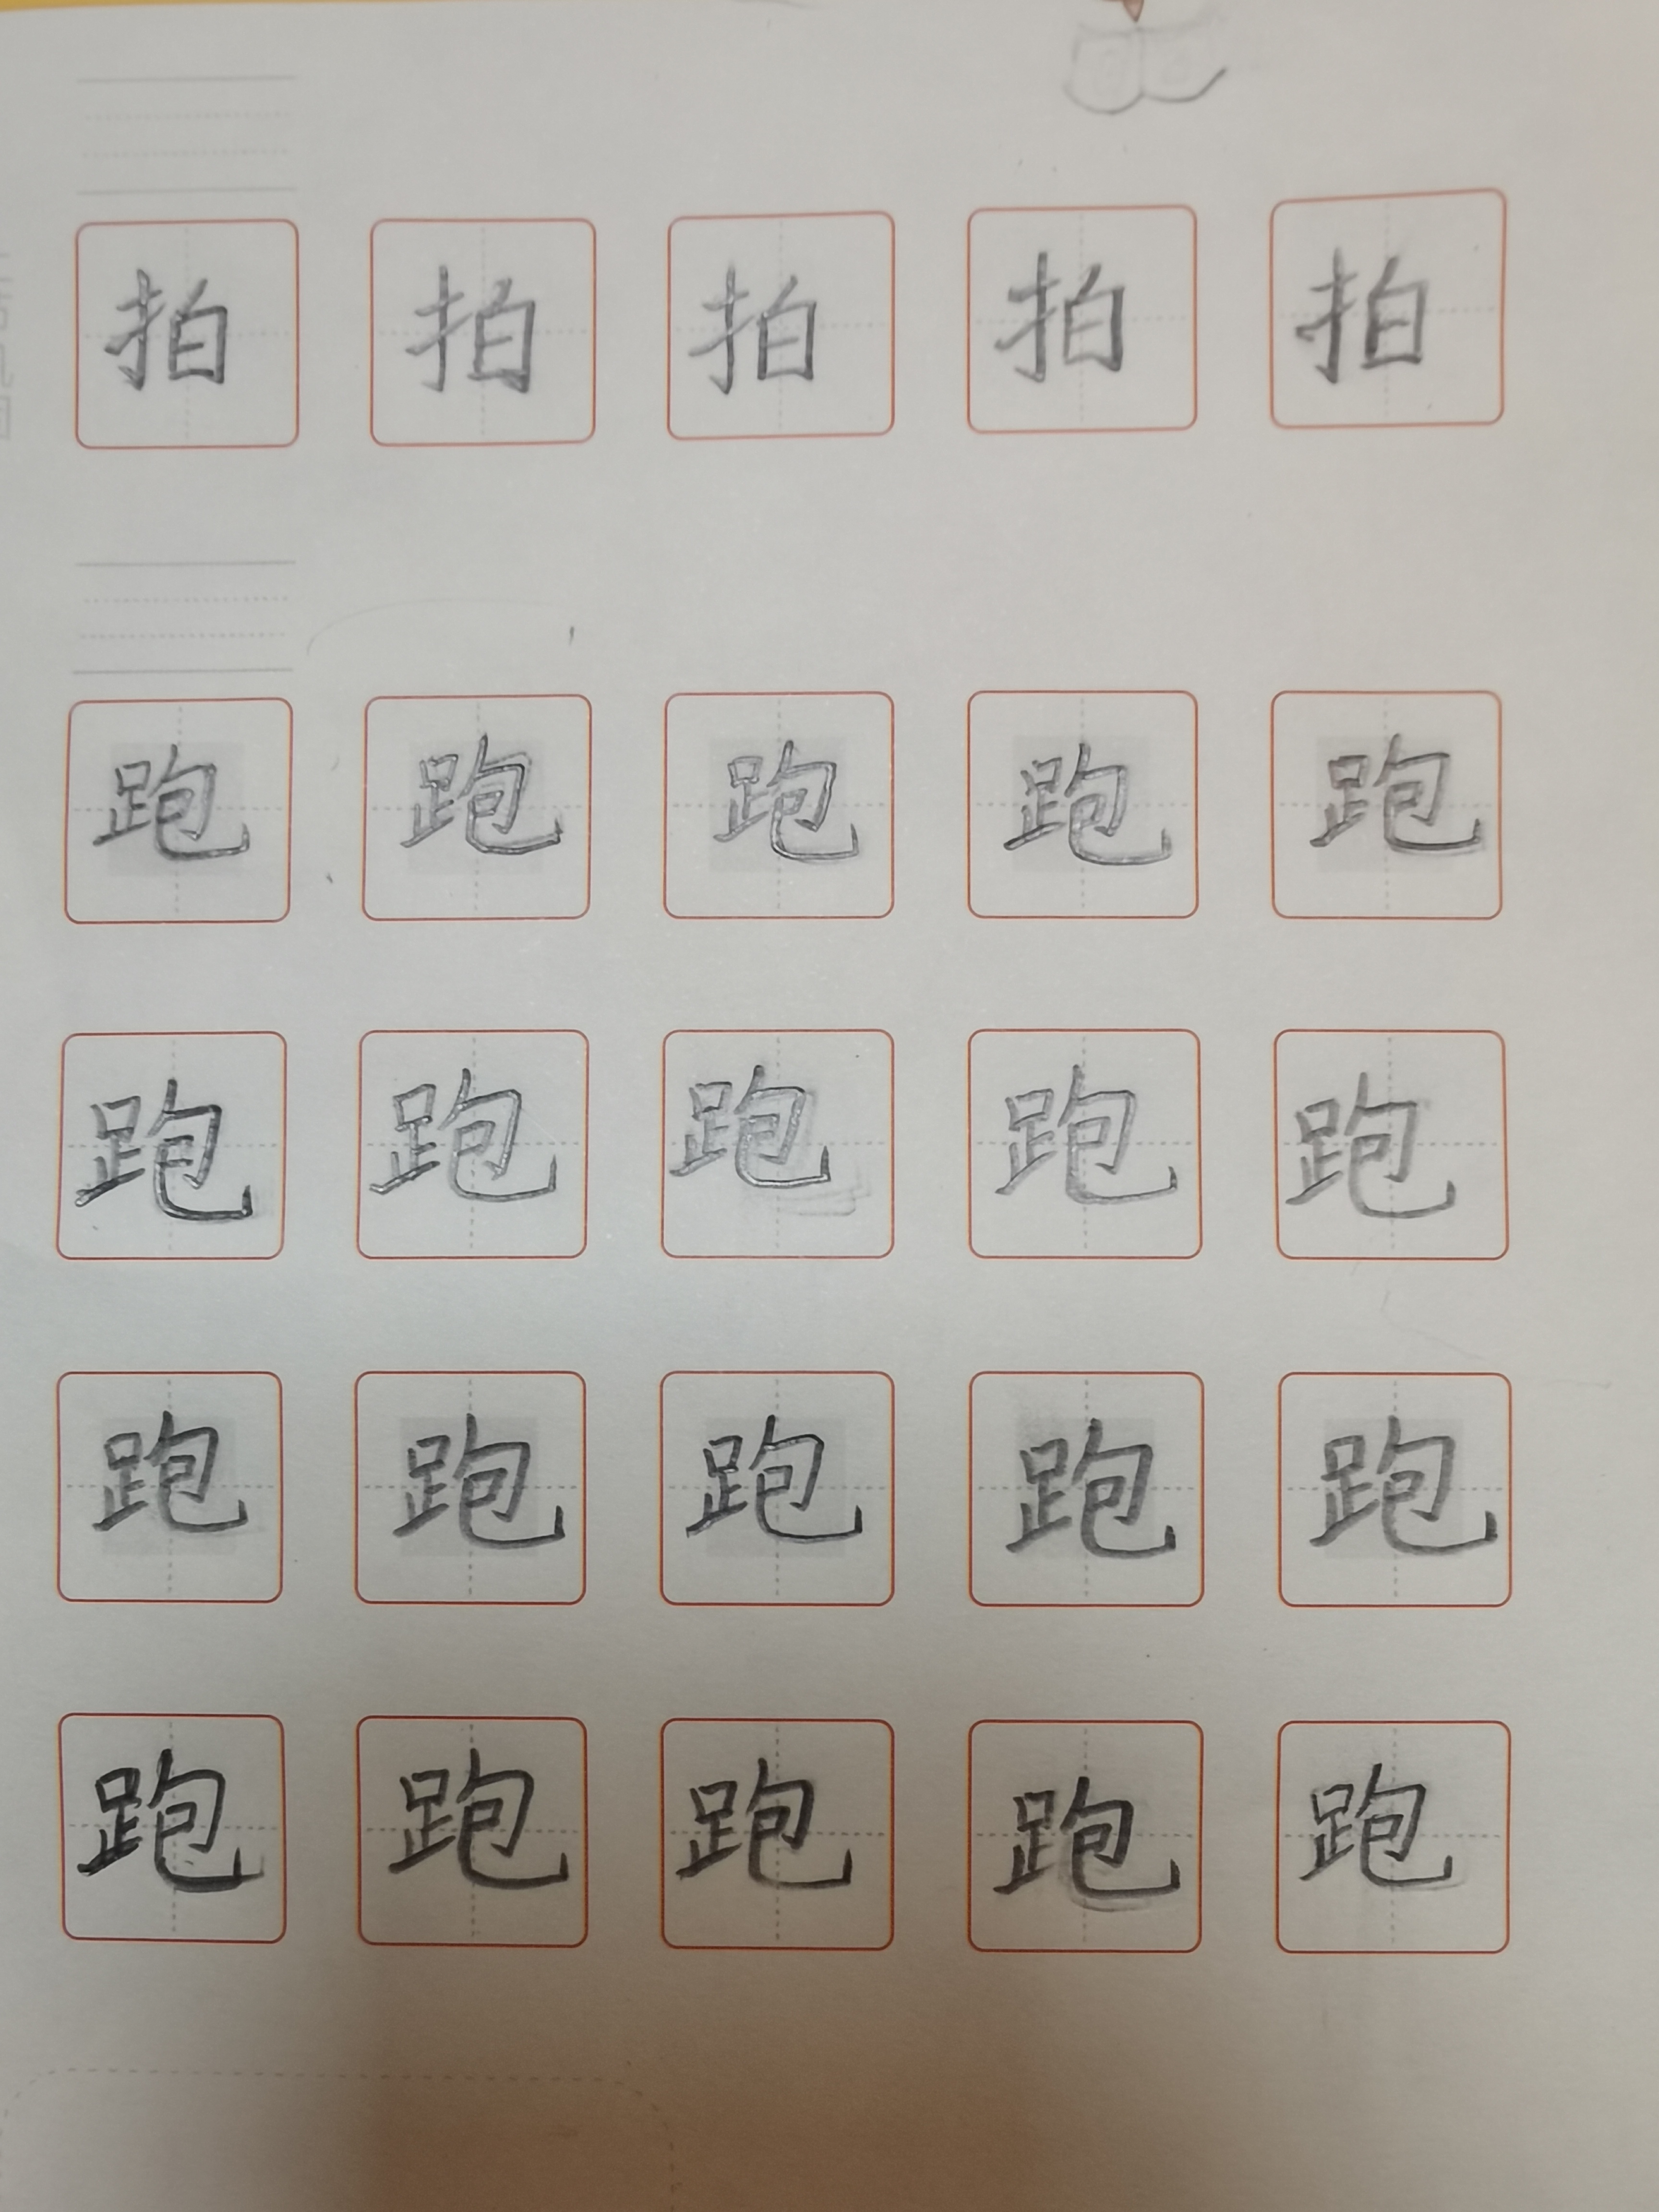 拍 拍 拍 拍 拍
跑 跑 跑 跑 跑
跑 跑 跑 跑 跑
跑 跑 跑 跑 跑
跑 跑 跑 跑 跑